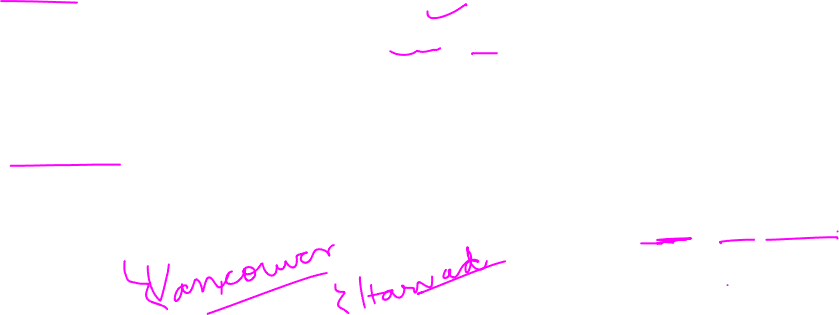 Vancouver
Harvad